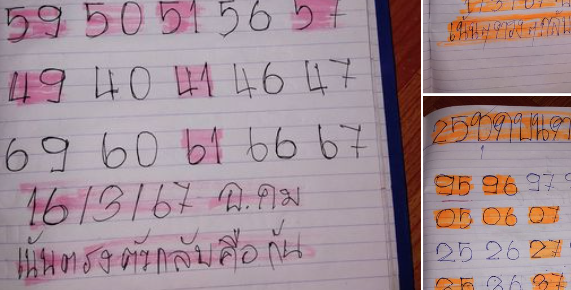 59 50 51 56 57
49 40 41 46 47
69 60 61 66 67
16/3/67 ฉ.คม
เน้นตรงตัวกลับคือกัน
95 96 97
05 06 07
25 26 27
35 36 37